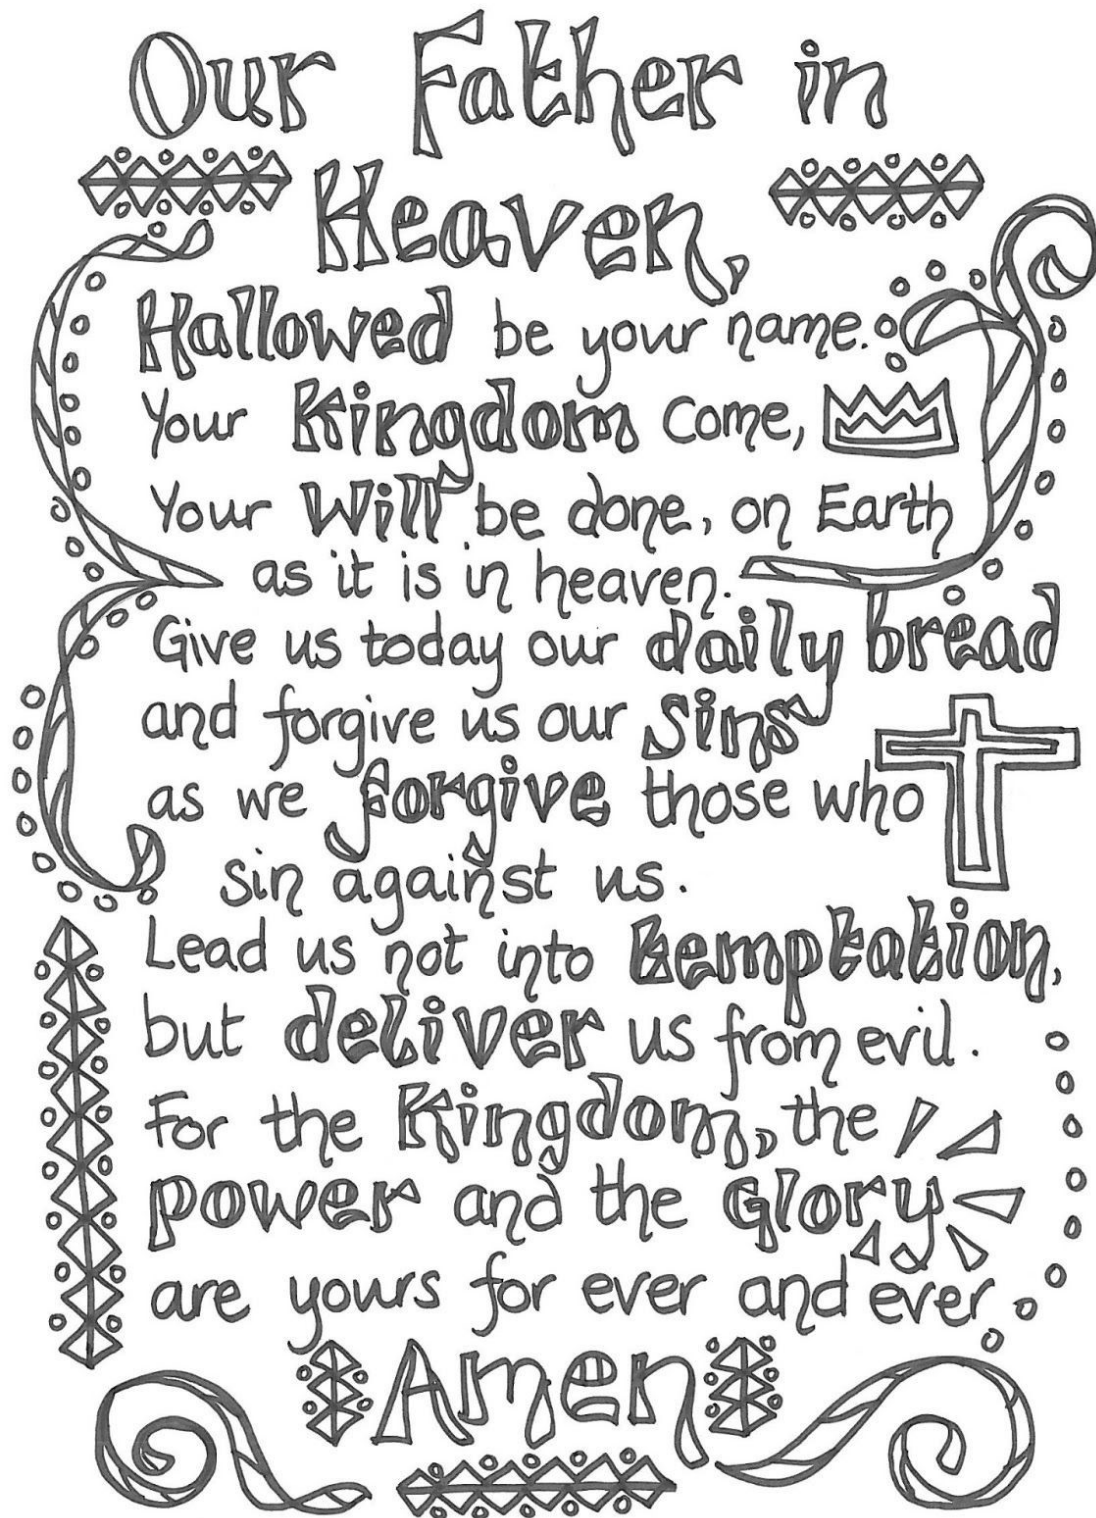 Our Father in
Heaven,
Hallowed be your name.
Your Kingdom come,
Your Will be done, on Earth
as it is in heaven.
Give us today our daily bread
and forgive us our Sins
as we forgive those who
sin against us.
Lead us not into temptation,
but deliver us from evil.
For the Kingdom, the
power and the Glory
are yours for ever and ever
Amen